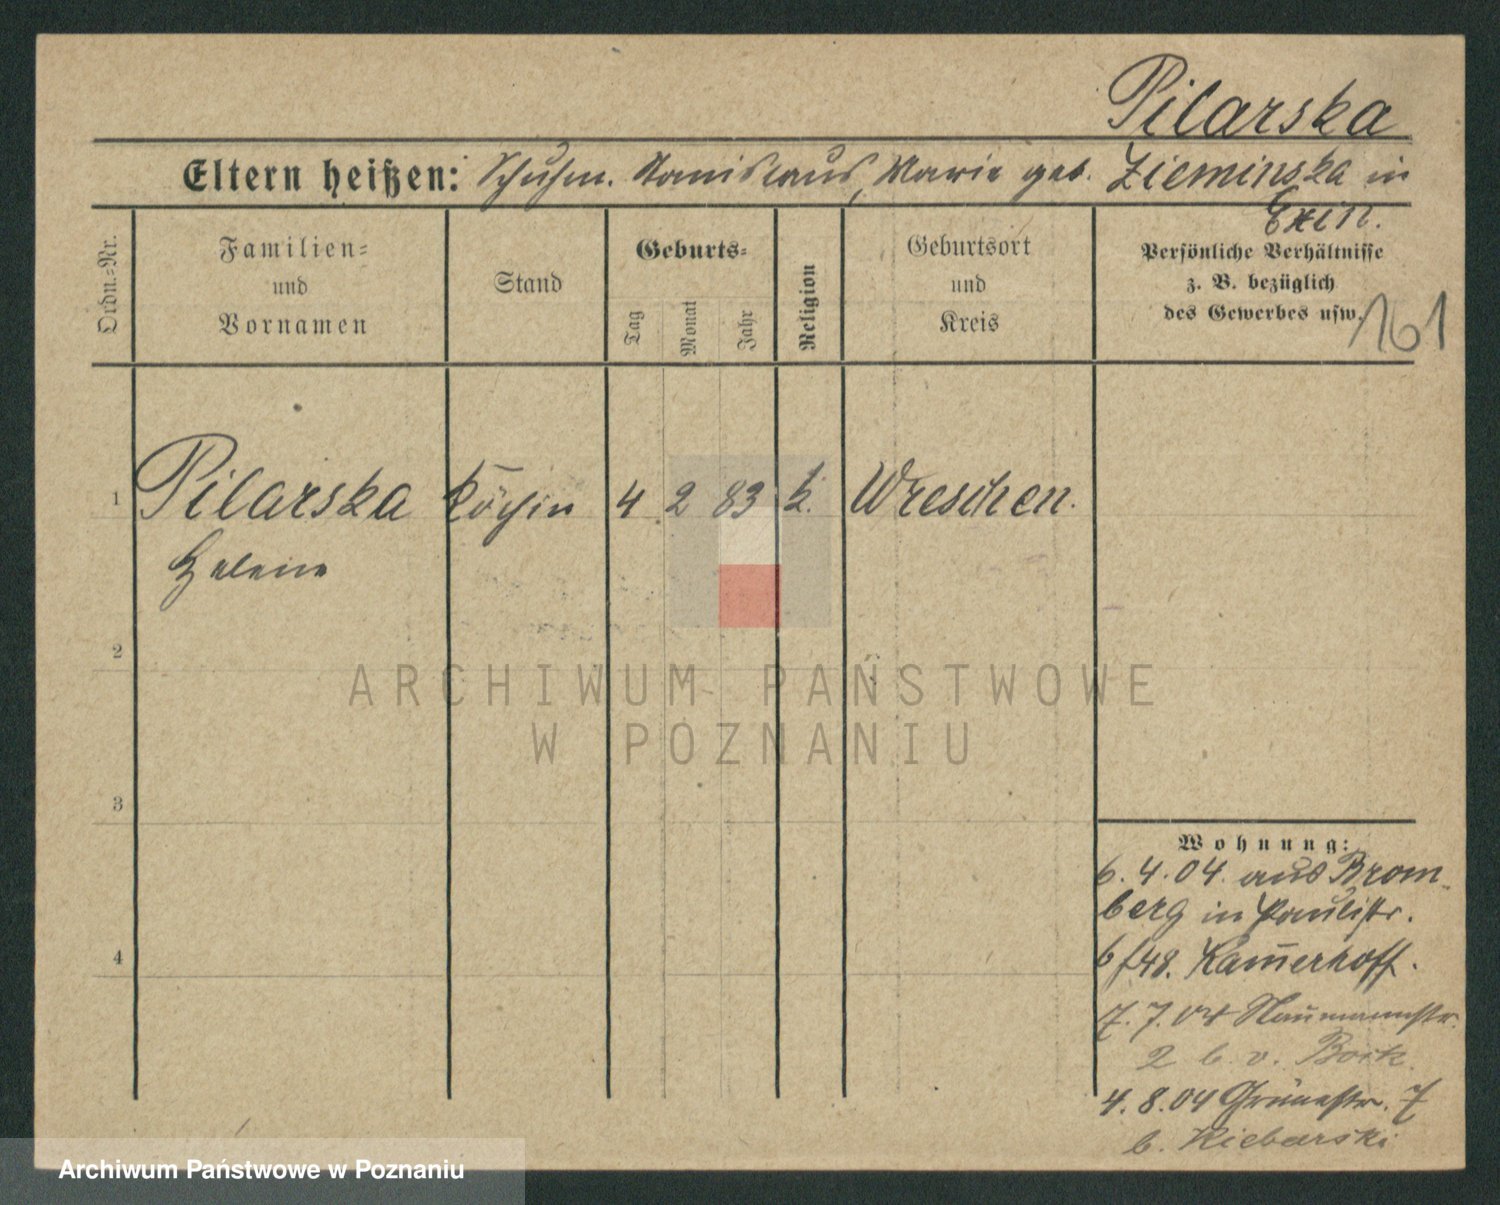 Pilarska
Eltern heißen: Schuhm. Stanislaus, Marie geb. Zieminska in
Exin.
Ordn.=Nr.
Familien=
und
Vornamen
Stand
Geburts=
Tag
Monat
Jahr
Religion
Geburtsort
und
Kreis
Persönliche Verhältnisse
z. B. bezüglich
des Gewerbes usw.
161
1 Pilarska Köchin 4 2 83 k. Wreschen.
Helene
2
3
4
Wohnung:
6.4.04. aus Brom-
berg in Paulistr.
Kam̅erhoff.
7.7.04 Naumannstr.
2 b. v. Bock.
4.8.04 Grünestr. 7
b. Riebarski
ARCHIWUM PAŃSTWOWE
W POZNANIU
Archiwum Państwowe w Poznaniu